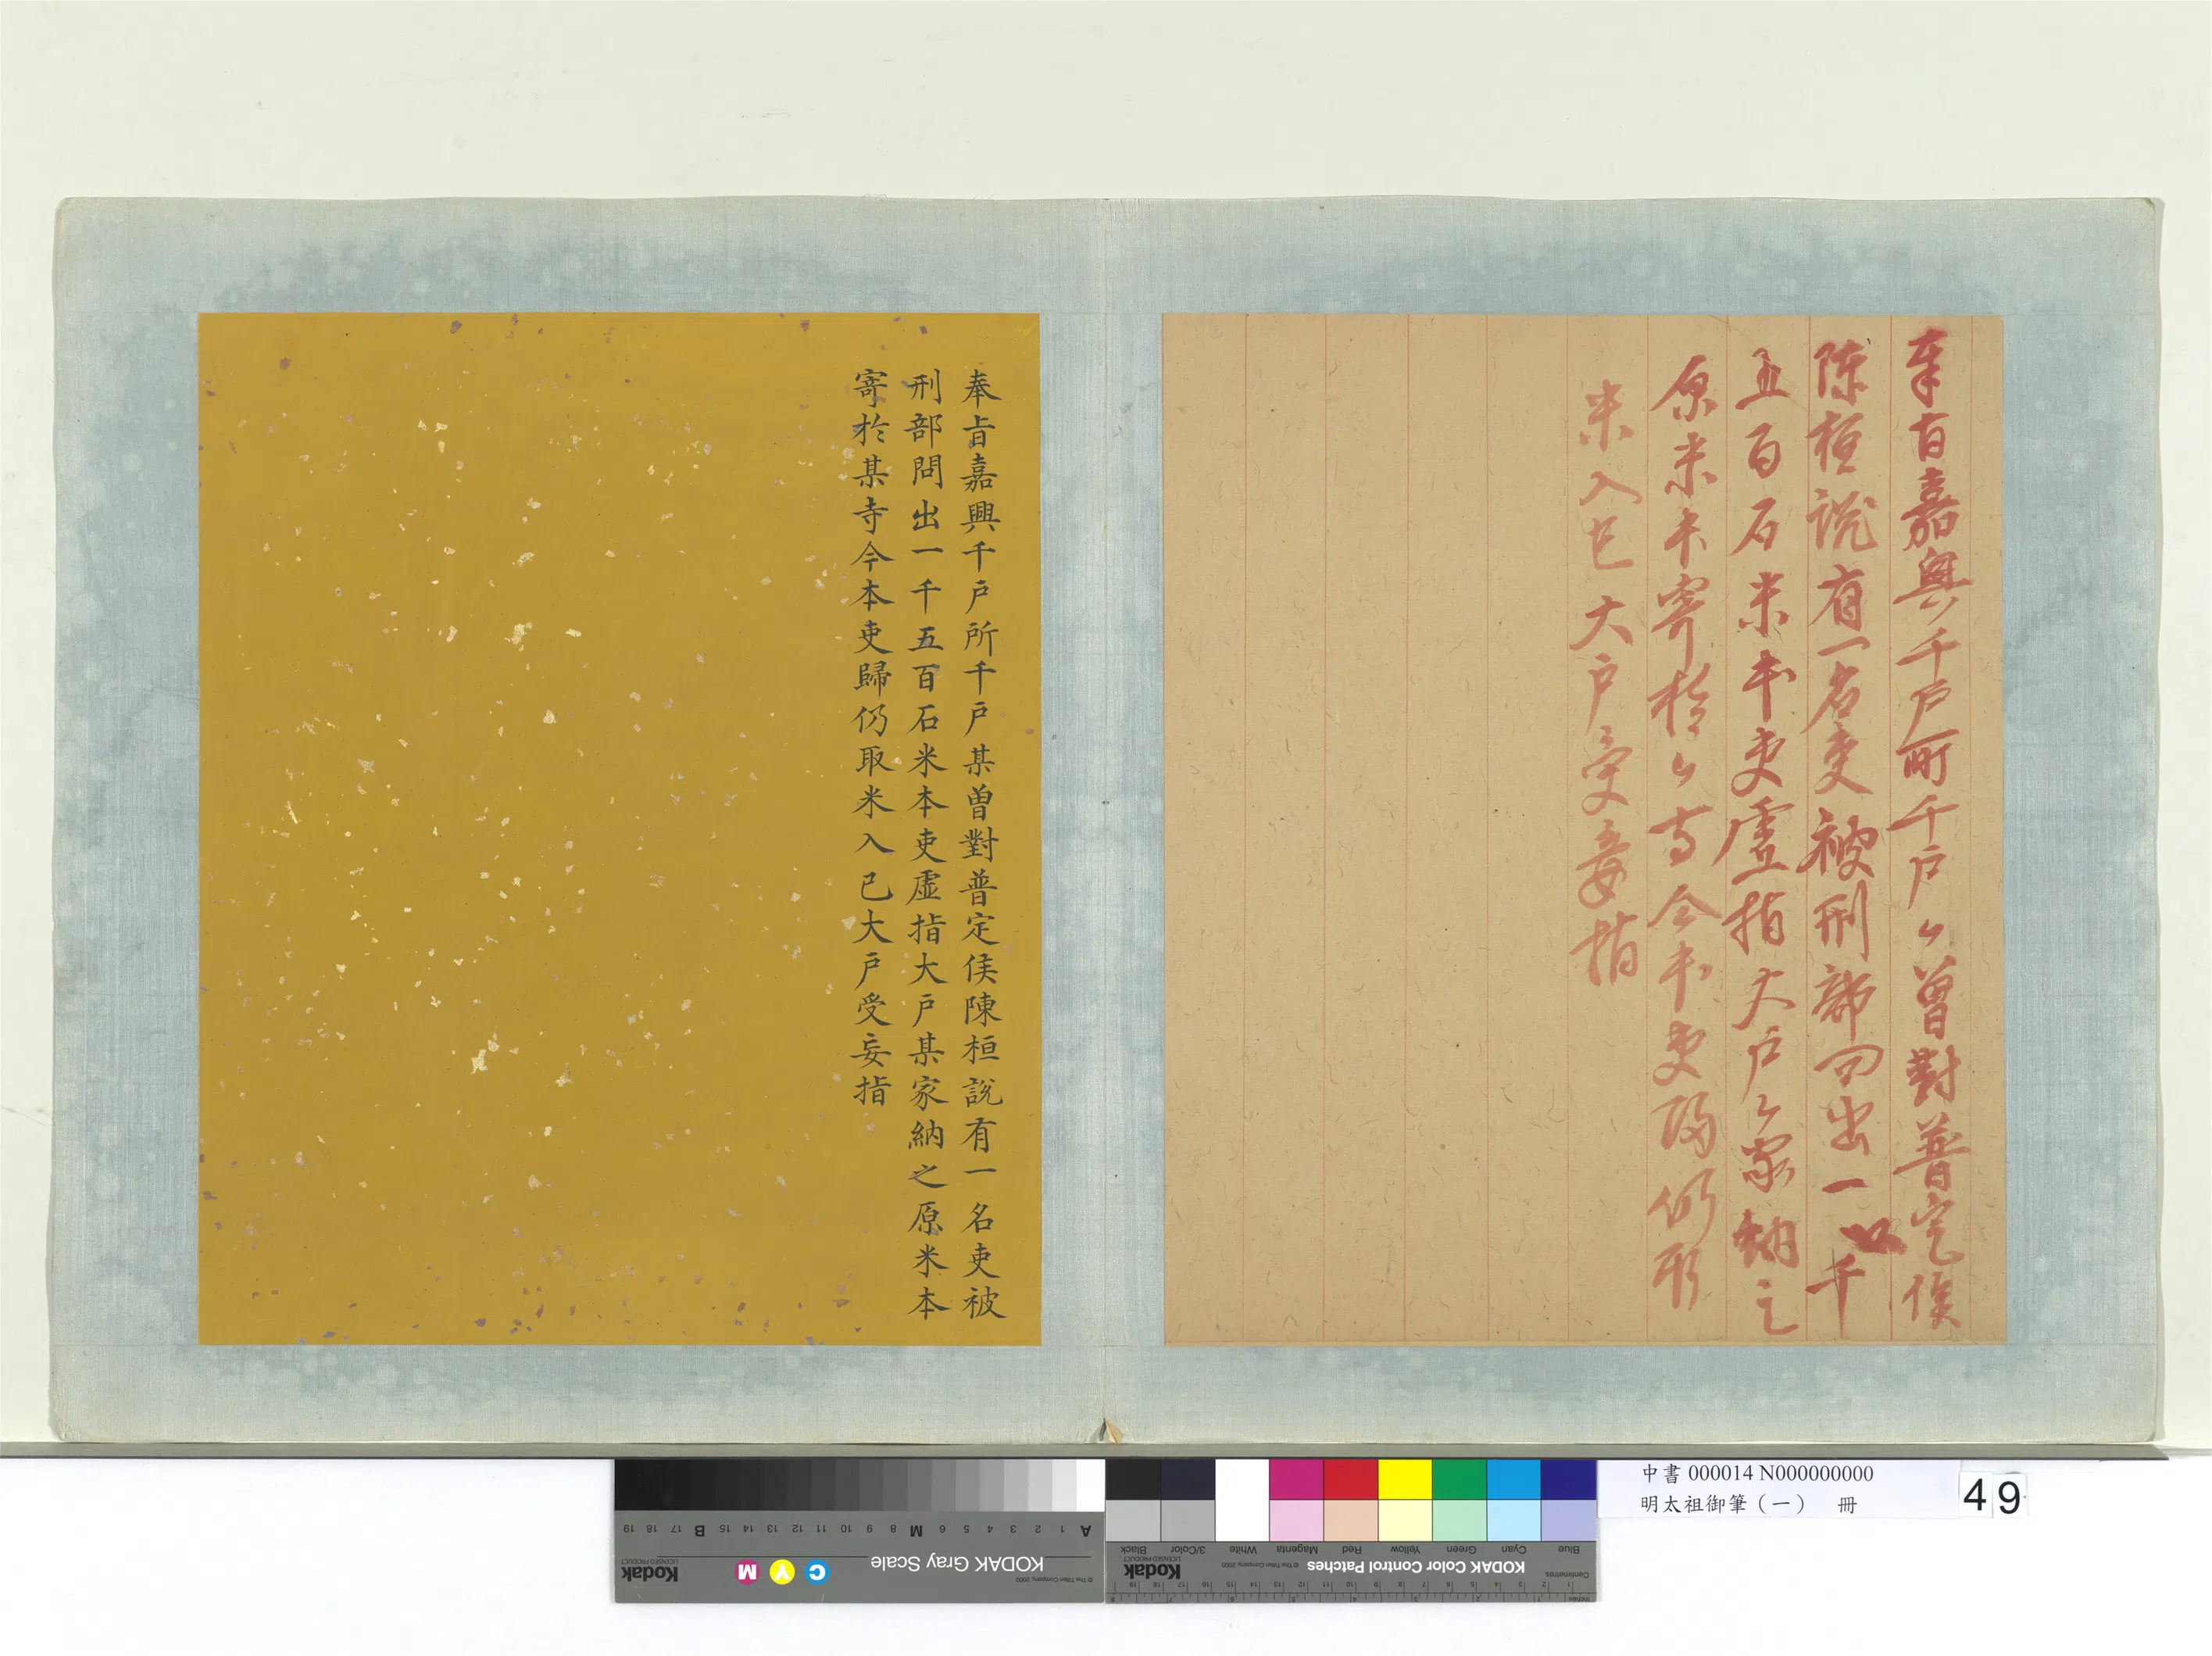 奉旨嘉興千戶所千戶厶曾對普定侯
陳桓說有一名吏被刑部問出一千
五百石米本吏虛指大戶厶家納之
原米本寄於厶寺今本吏歸仍取
米入已大戶受妄指
奉旨嘉興千戶所千戶某曾對普定侯陳桓說有一名吏被
刑部問出一千五百石米本吏虛指大戶某家納之原米本
寄於某寺今本吏歸仍取米入已大戶受妄指
中書 000014 N000000000
明太祖御筆（一） 冊
49
A 1 2 3 4 5 6 M 8 9 10 11 12 13 14 15 B 17 18 19
KODAK Gray Scale
© The Tiffen Company, 2000
C Y M
Kodak
LICENSED PRODUCT
Blue Cyan Green Yellow Red Magenta White 3/Color Black
KODAK Color Control Patches
© The Tiffen Company, 2000
Kodak
LICENSED PRODUCT
Centimetres
1 2 3 4 5 6 7 8 9 10 11 12 13 14 15 16 17 18 19
Inches 1 2 3 4 5 6 7 8